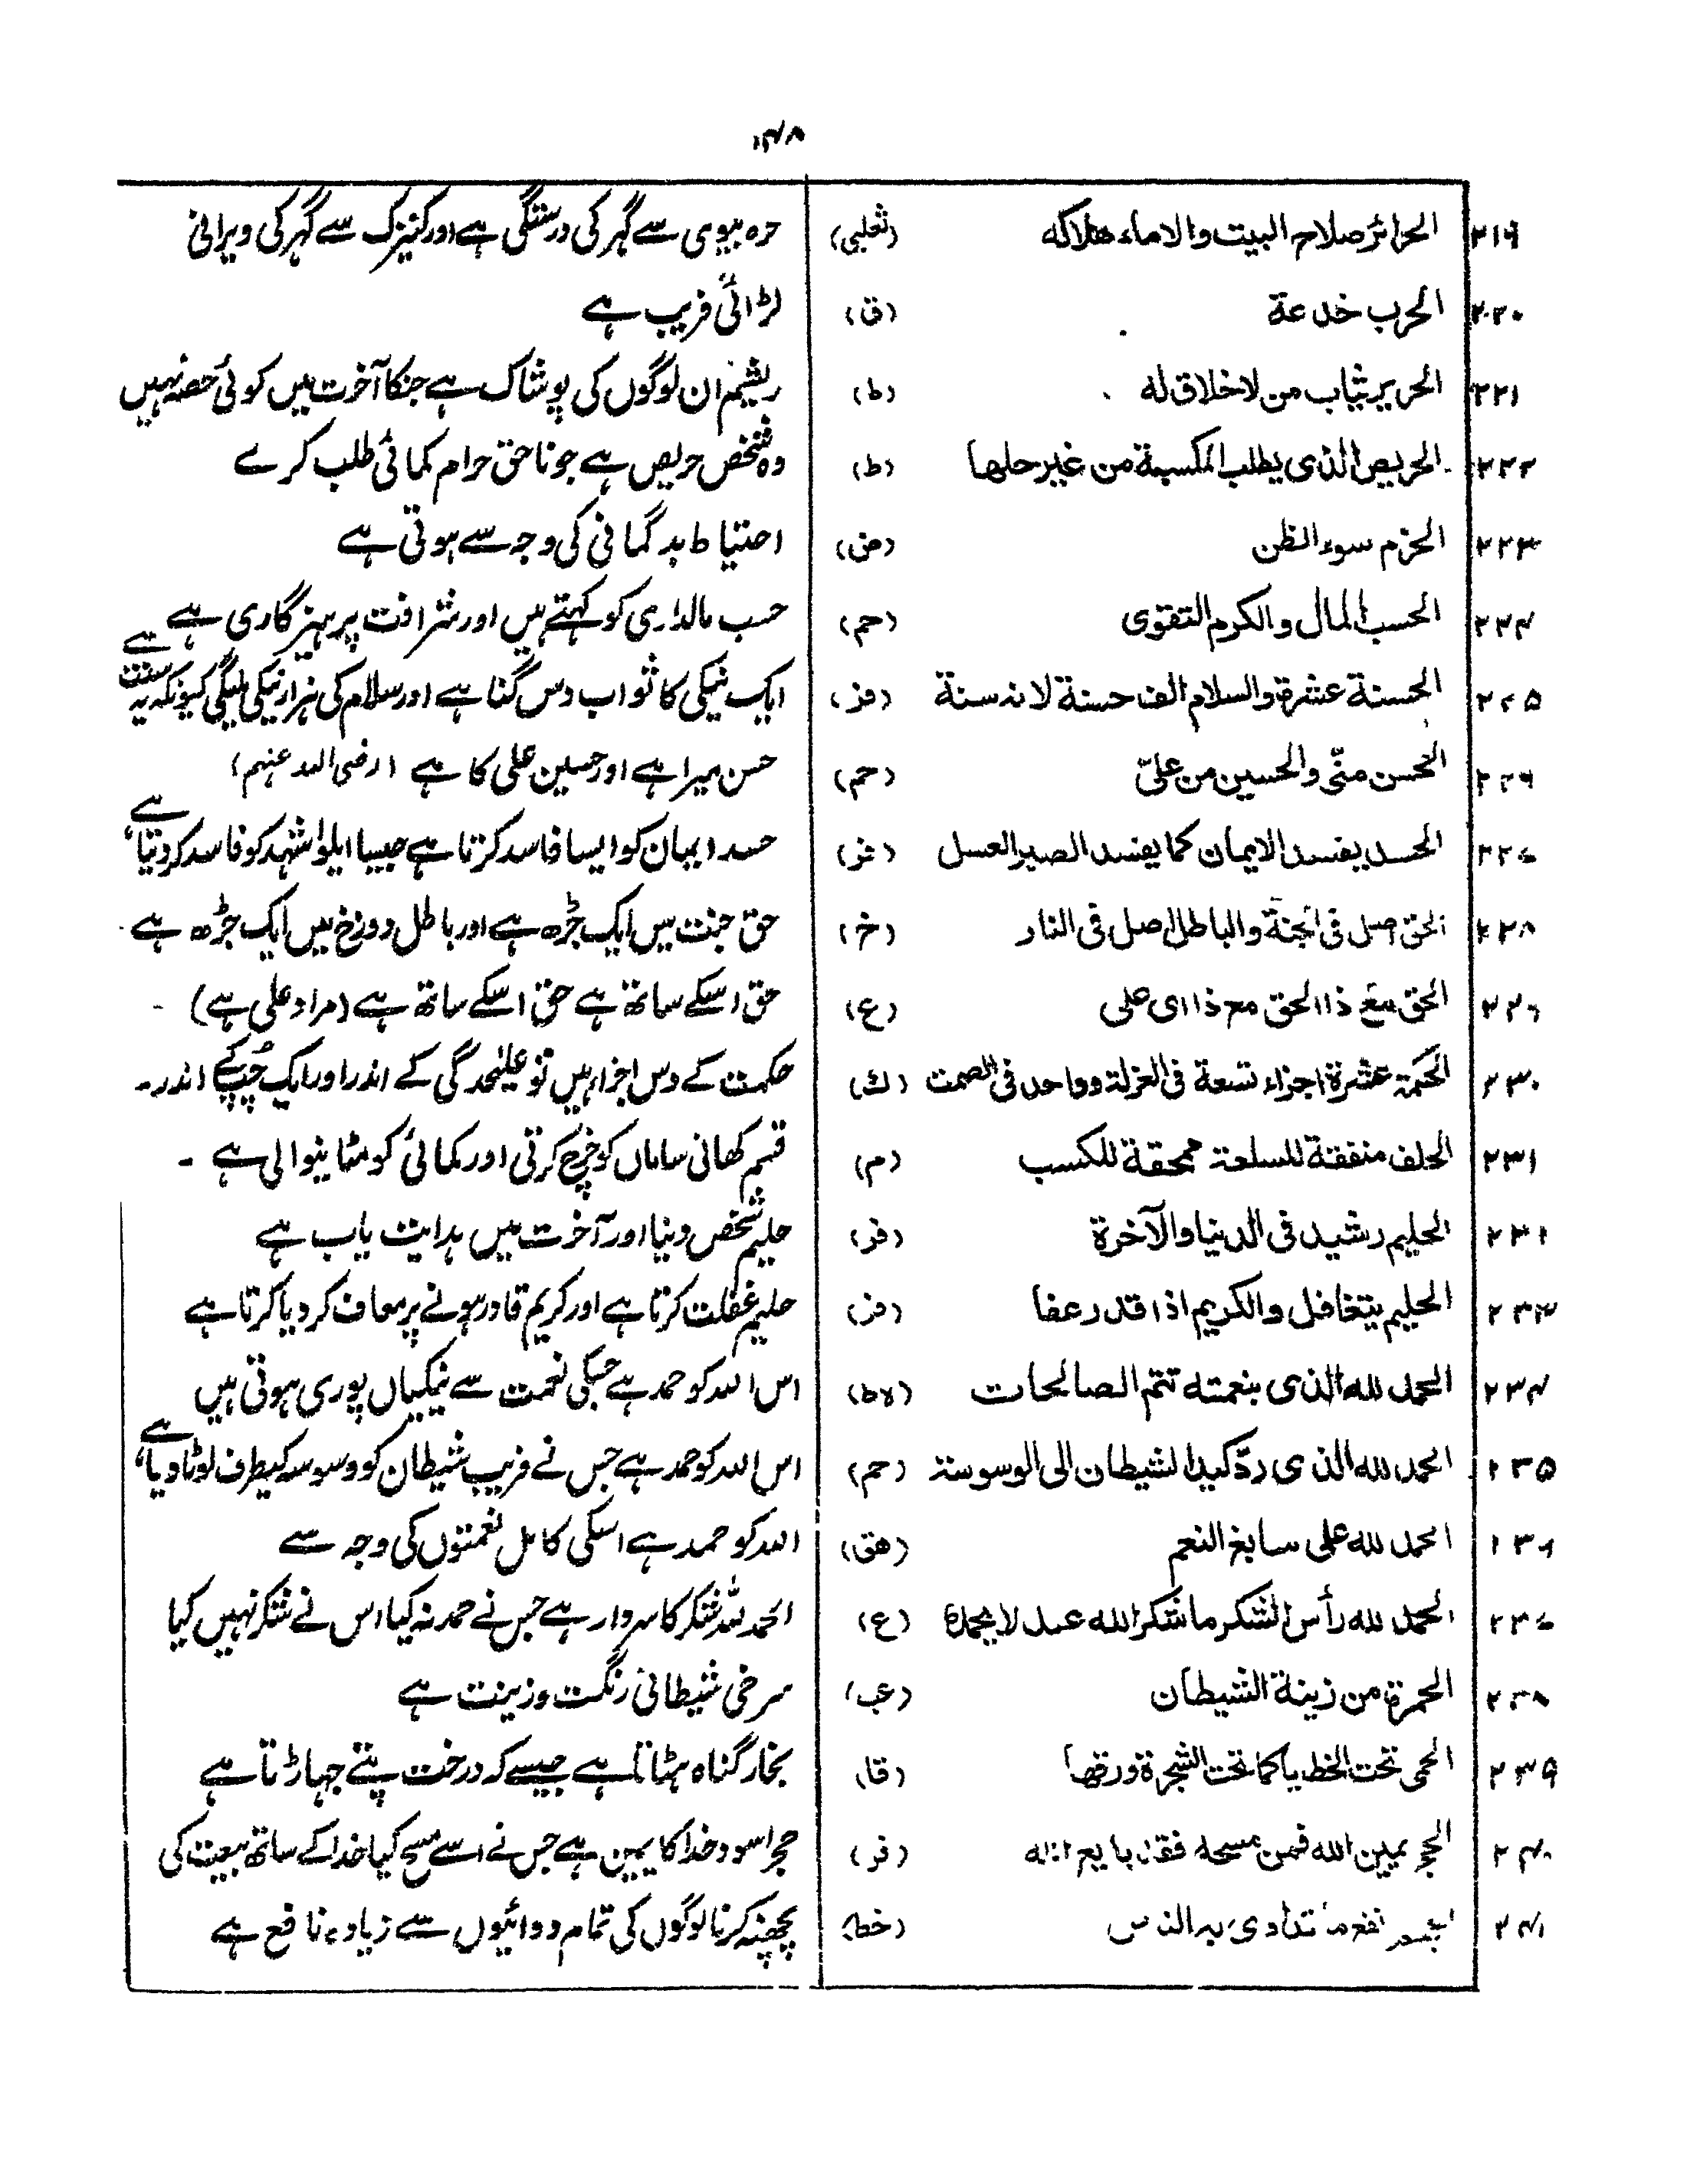 ۱۴۸
۲۱۹ الحرائر صلاح البيت والاماء هلاكه (ثعلبی) حرہ بیوی سے گہر کی درستگی ہے اور کنیزک سے گہر کی ویرانی
۲۲۰ الحرب خدعة (ق) لڑائی فریب ہے
۲۲۱ الحرير ثياب من لا خلاق له (ط) ریشم ان لوگوں کی پوشاک ہے جنکا آخرت میں کوئی حصہ نہیں
۲۲۲ الحريص الذى يطلب المكسبة من غير حلها (ط) وہ شخص حریص ہے جو ناحق حرام کمائی طلب کرے
۲۲۳ الحزم سوء الظن (ض) احتیاط بدگمانی کی وجہ سے ہوتی ہے
۲۲۴ الحسب المال والكرم التقوى (حم) حسب مالداری کو کہتے ہیں اور شرافت پرہیزگاری ہے
۲۲۵ الحسنة عشرة والسلام الف حسنة لانه سنة (فز) ایک نیکی کا ثواب دس گنا ہے اور سلام کی ہزار نیکی ملیگی کیونکہ یہ سنت ہے
۲۲۶ الحسن منّى والحسين من علىّ (حم) حسن میرا ہے اور حسین علی کا ہے (رضی اللہ عنہم)
۲۲۷ الحسد يفسد الايمان كما يفسد الصبر العسل (فر) حسد ایمان کو ایسا فاسد کرتا ہے جیسا ایلوا شہد کو فاسد کر دیتا ہے
۲۲۸ الحق اصل فى الجنة والباطل اصل فى النار (خ) حق جنت میں ایک جڑھ ہے اور باطل دوزخ میں ایک جڑھ ہے
۲۲۹ الحق مع ذا الحق مع ذا اى على (ع) حق اسکے ساتھ ہے حق اسکے ساتھ ہے (مراد علی ہے)
۲۳۰ الحكمة عشرة اجزاء تسعة فى العزلة وواحد فى الصمت (ك) حکمت کے دس اجزاء ہیں نو علیٰحدگی کے اندر اور ایک چُپ کے اندر۔
۲۳۱ الحلف منفقة للسلعة ممحقة للكسب (م) قسم کھانی ساماں کو خرچ کرتی اور کمائی کو مٹا ینوالی ہے ۔
۲۳۲ الحليم رشيد فى الدنيا والآخرة (فر) حلیم شخص دنیا اور آخرت میں ہدایت یاب ہے
۲۳۳ الحليم يتغافل والكريم اذا قدر عفا (فر) حلیم غفلت کرتا ہے اور کریم قادر ہونے پر معاف کر دیا کرتا ہے
۲۳۴ الحمد لله الذى بنعمته تتم الصالحات (لاط) اس اللہ کو حمد ہے جسکی نعمت سے نیکیاں پوری ہوتی ہیں
۲۳۵ الحمد لله الذى ردّ كيد الشيطان الى الوسوسة (حم) اس اللہ کو حمد ہے جس نے فریب شیطان کو وسوسہ کیطرف لوٹا دیا ہے
۲۳۶ الحمد لله على سابغ النعم (هق) اللہ کو حمد ہے اسکی کامل نعمتوں کی وجہ سے
۲۳۷ الحمد لله رأس الشكر ما شكر الله عبد لا يحمده (ع) الحمد للہ شکر کا سردار ہے جس نے حمد نہ کیا اس نے شکر نہیں کیا
۲۳۸ الحمرة من زينة الشيطان (عب) سرخی شیطانی رنگت و زینت ہے
۲۳۹ الحمى تحت الخطايا كما تحت الشجرة ورقها (قا) بخار گناہ ہٹاتا ہے جیسے کہ درخت پتے جہاڑتا ہے
۲۴۰ الحجر يمين الله فمن مسحه فقد بايع الله (فر) حجر اسود خدا کا یمین ہے جس نے اسے مسح کیا خدا کے ساتھ بیعت کی
۲۴۱ نفع ما تداوى به الناس (خط) پچھنہ کرنا لوگوں کی تمام دوائیوں سے زیادہ نافع ہے